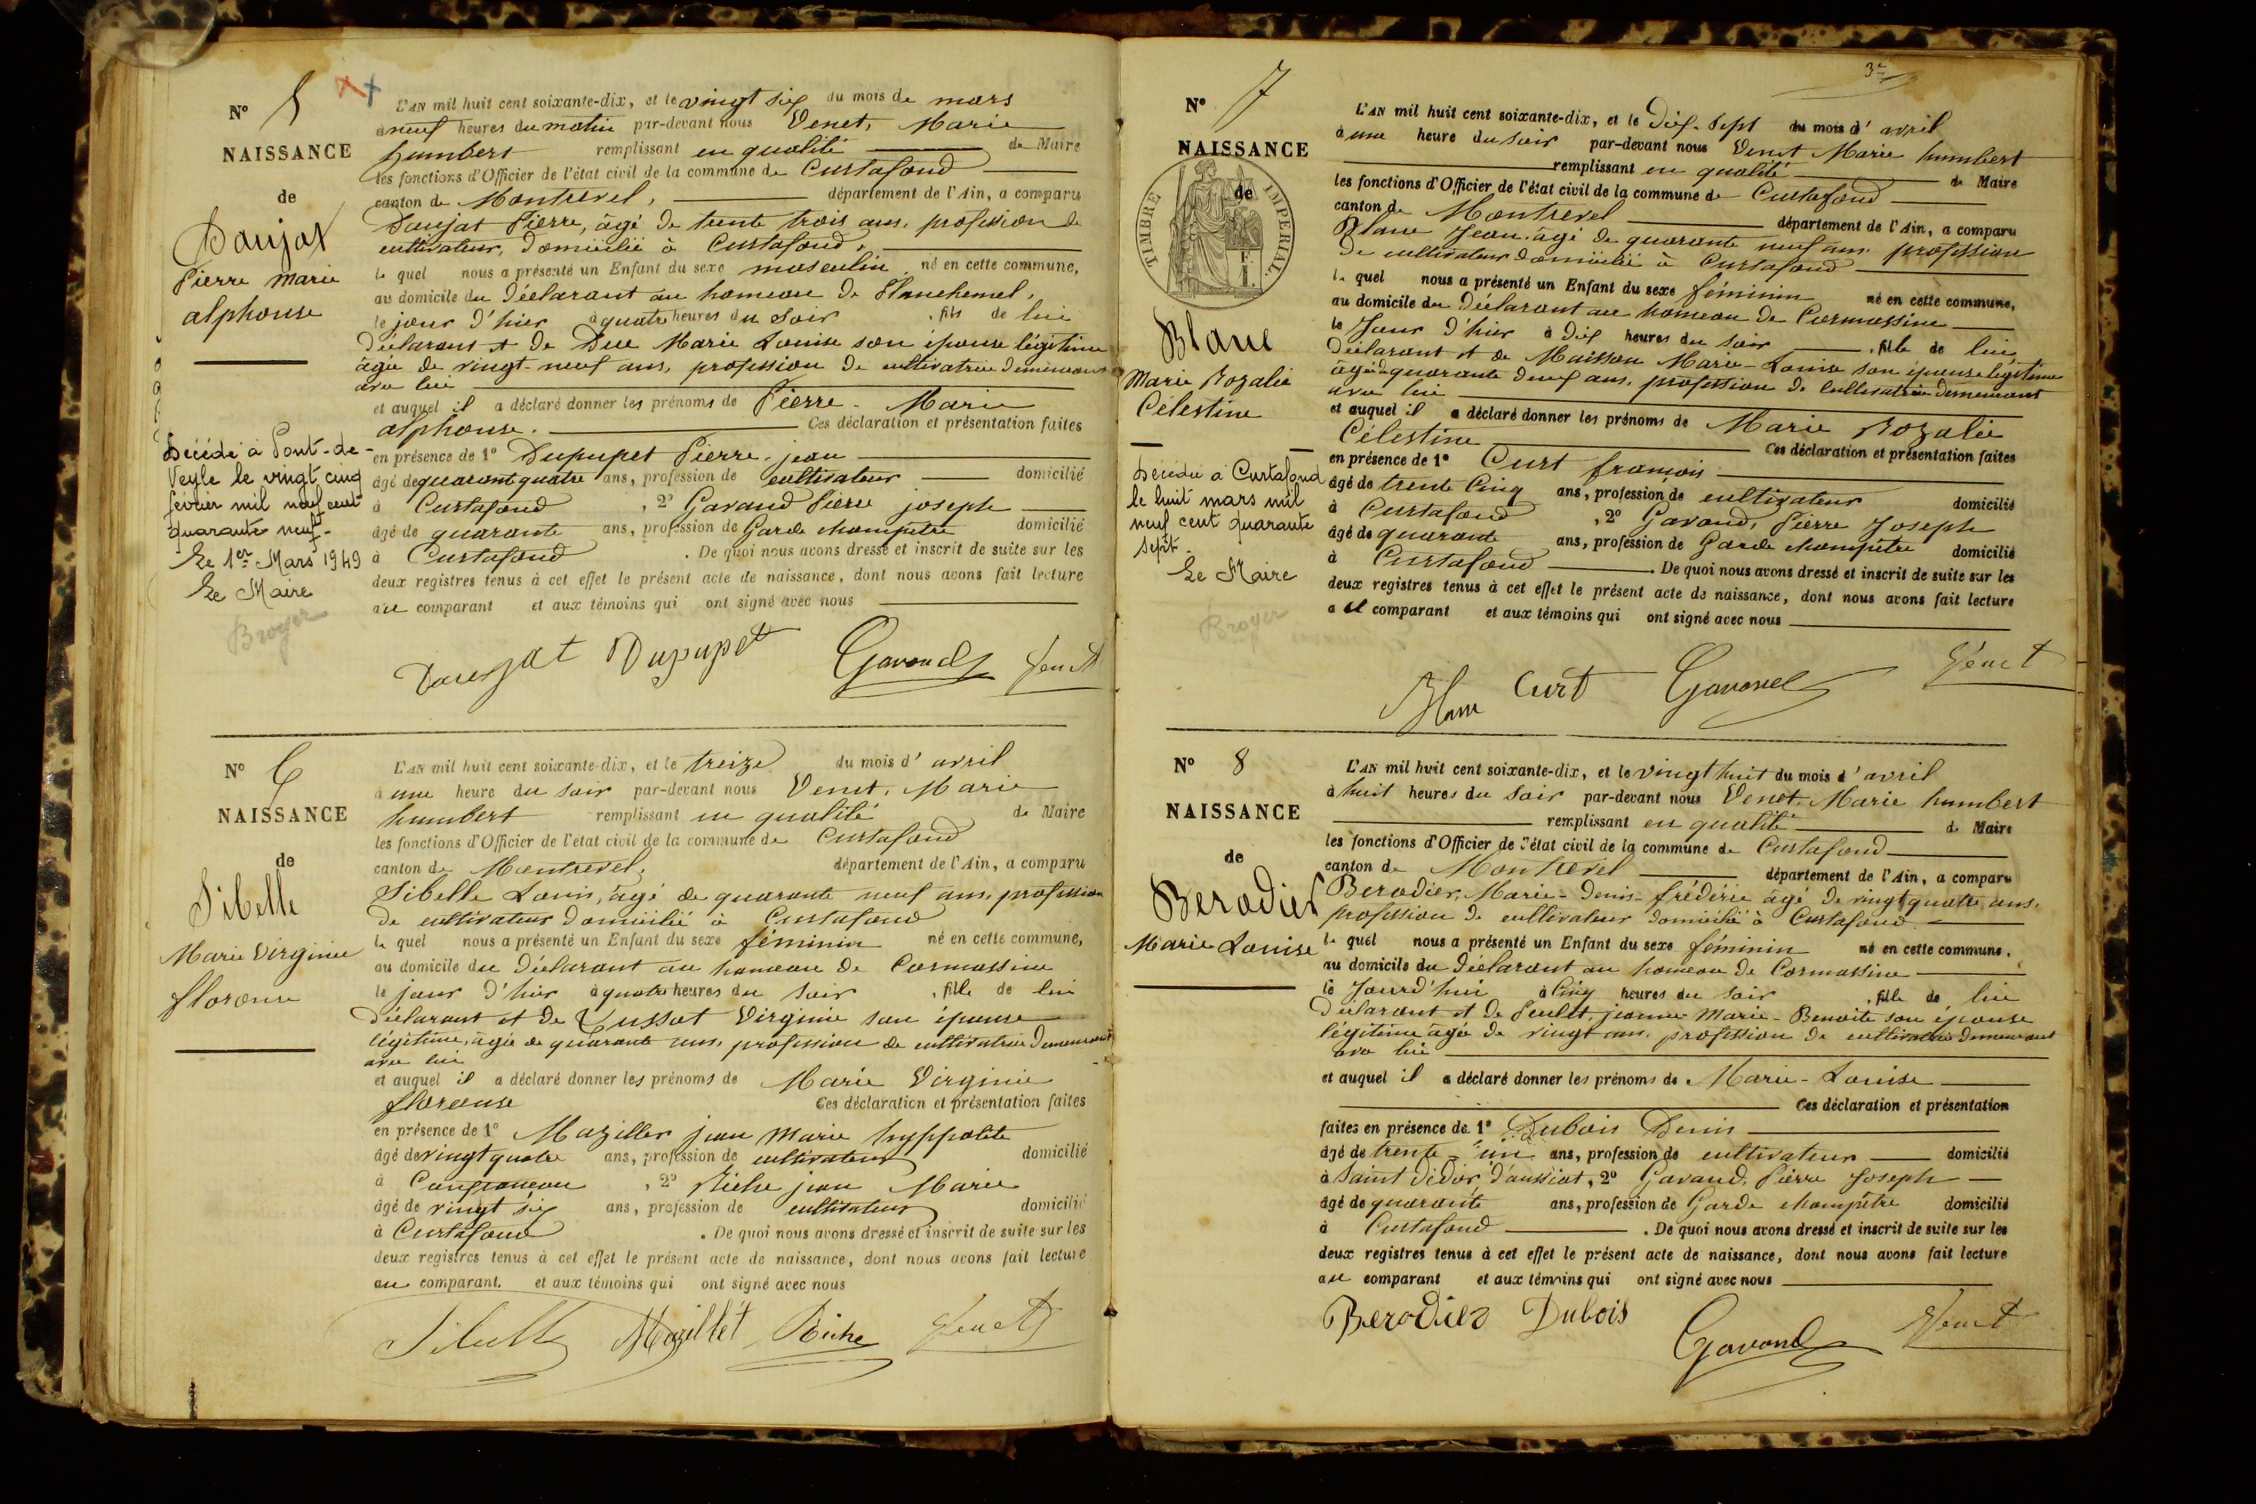 N° 5
NAISSANCE
de
Daujat
Pierre Marie
alphonse
Décédé à Pont-de-
Veyle le vingt cinq
février mil neuf cent
quarante neuf.
Le 1er Mars 1949
Le Maire
Broyer
L'AN mil huit cent soixante-dix, et le vingt six du mois de mars
à neuf heures du matin par-devant nous Venet, Marie
humbert remplissant en qualité de Maire
les fonctions d'Officier de l'état civil de la commune de Curtafond
canton de Montrevel, département de l'Ain, a comparu
Daujat Pierre, âgé de trente trois ans, profession de
cultivateur, domicilié à Curtafond,
le quel nous a présenté un Enfant du sexe masculin né en cette commune,
au domicile du déclarant au hameau de
le jour d'hier à quatre heures du soir, fils de lui
déclarant et de Duc Marie Louise son épouse légitime
âgée de vingt-neuf ans, profession de cultivatrice demeurant
avec lui
et auquel il a déclaré donner les prénoms de Pierre-Marie
alphonse. Ces déclaration et présentation faites
en présence de 1° Dupupet Pierre-jean
âgé de quarante quatre ans, profession de cultivateur domicilié
à Curtafond, 2° Gavand Pierre joseph
âgé de quarante ans, profession de Garde champêtre domicilié
à Curtafond. De quoi nous avons dressé et inscrit de suite sur les
deux registres tenus à cet effet le présent acte de naissance, dont nous avons fait lecture
au comparant et aux témoins qui ont signé avec nous
Daujat Dupupet Gavand Venet
N° 6
NAISSANCE
de
Sibelle
Marie Virginie
florence
L'AN mil huit cent soixante-dix, et le treize du mois d'avril
à une heure du soir par-devant nous Venet, Marie
humbert remplissant en qualité de Maire
les fonctions d'Officier de l'état civil de la commune de Curtafond
canton de Montrevel, département de l'Ain, a comparu
Sibelle Louis, âgé de quarante neuf ans, profession
de cultivateur domicilié à Curtafond
le quel nous a présenté un Enfant du sexe féminin né en cette commune,
au domicile du déclarant au hameau de Cormassine
le jour d'hier à quatre heures du soir, fille de lui
déclarant et de Cussat Virginie son épouse
légitime, âgée de quarante ans, profession de cultivatrice demeurant
avec lui
et auquel il a déclaré donner les prénoms de Marie Virginie
florence Ces déclaration et présentation faites
en présence de 1° Mazillet jean Marie hyppolite
âgé de vingt quatre ans, profession de cultivateur domicilié
à Confrançon, 2° Riche jean Marie
âgé de vingt six ans, profession de cultivateur domicilié
à Curtafond. De quoi nous avons dressé et inscrit de suite sur les
deux registres tenus à cet effet le présent acte de naissance, dont nous avons fait lecture
au comparant. et aux témoins qui ont signé avec nous
Sibelle Mazillet Riche Venet
3e
N° 7
NAISSANCE
de
TIMBRE IMPÉRIAL.
Blanc
Marie Rozalie
Célestine
Décédée à Curtafond
le huit mars mil
neuf cent quarante
sept.
Le Maire
Broyer
L'AN mil huit cent soixante-dix, et le dix-sept du mois d'avril
à une heure du soir par-devant nous Venet Marie humbert
remplissant en qualité de Maire
les fonctions d'Officier de l'état civil de la commune de Curtafond
canton de Montrevel département de l'Ain, a comparu
Blanc Jean, âgé de quarante neuf ans, profession
de cultivateur domicilié à Curtafond
le quel nous a présenté un Enfant du sexe féminin né en cette commune,
au domicile du déclarant au hameau de Cormassine
le Jour d'hier à dix heures du soir, fille de lui
déclarant et de Maisson Marie-Louise son épouse légitime
âgée de quarante deux ans, profession de cultivatrice demeurant
avec lui
et auquel il a déclaré donner les prénoms de Marie Rozalie
Célestine Ces déclaration et présentation faites
en présence de 1° Curt françois
âgé de trente Cinq ans, profession de cultivateur domicilié
à Curtafond, 2° Gavand, Pierre Joseph
âgé de quarante ans, profession de Garde champêtre domicilié
à Curtafond. De quoi nous avons dressé et inscrit de suite sur les
deux registres tenus à cet effet le présent acte de naissance, dont nous avons fait lecture
au comparant et aux témoins qui ont signé avec nous
Blanc Curt Gavand Venet
N° 8
NAISSANCE
de
Berodier
Marie Louise
L'AN mil huit cent soixante-dix, et le vingt huit du mois d'avril
à huit heures du soir par-devant nous Venet Marie humbert
remplissant en qualité de Maire
les fonctions d'Officier de l'état civil de la commune de Curtafond
canton de Montrevel département de l'Ain, a comparu
Berodier, Marie-Denis-frédéric âgé de vingt quatre ans,
profession de cultivateur domicilié à Curtafond
le quel nous a présenté un Enfant du sexe féminin né en cette commune,
au domicile du déclarant au hameau de Cormassine
le Jourd'hui à Cinq heures du soir, fille de lui
déclarant et de jeanne-Marie-Benoite son épouse
légitime âgée de vingt ans, profession de cultivatrice demeurant
avec lui
et auquel il a déclaré donner les prénoms de Marie-Louise
Ces déclaration et présentation
faites en présence de 1° Dubois Denis
âgé de trente-un ans, profession de cultivateur domicilié
à Saint didier d'aussiat, 2° Gavand, Pierre Joseph
âgé de quarante ans, profession de Garde champêtre domicilié
à Curtafond. De quoi nous avons dressé et inscrit de suite sur les
deux registres tenus à cet effet le présent acte de naissance, dont nous avons fait lecture
au comparant et aux témoins qui ont signé avec nous
Berodier Dubois Gavand Venet